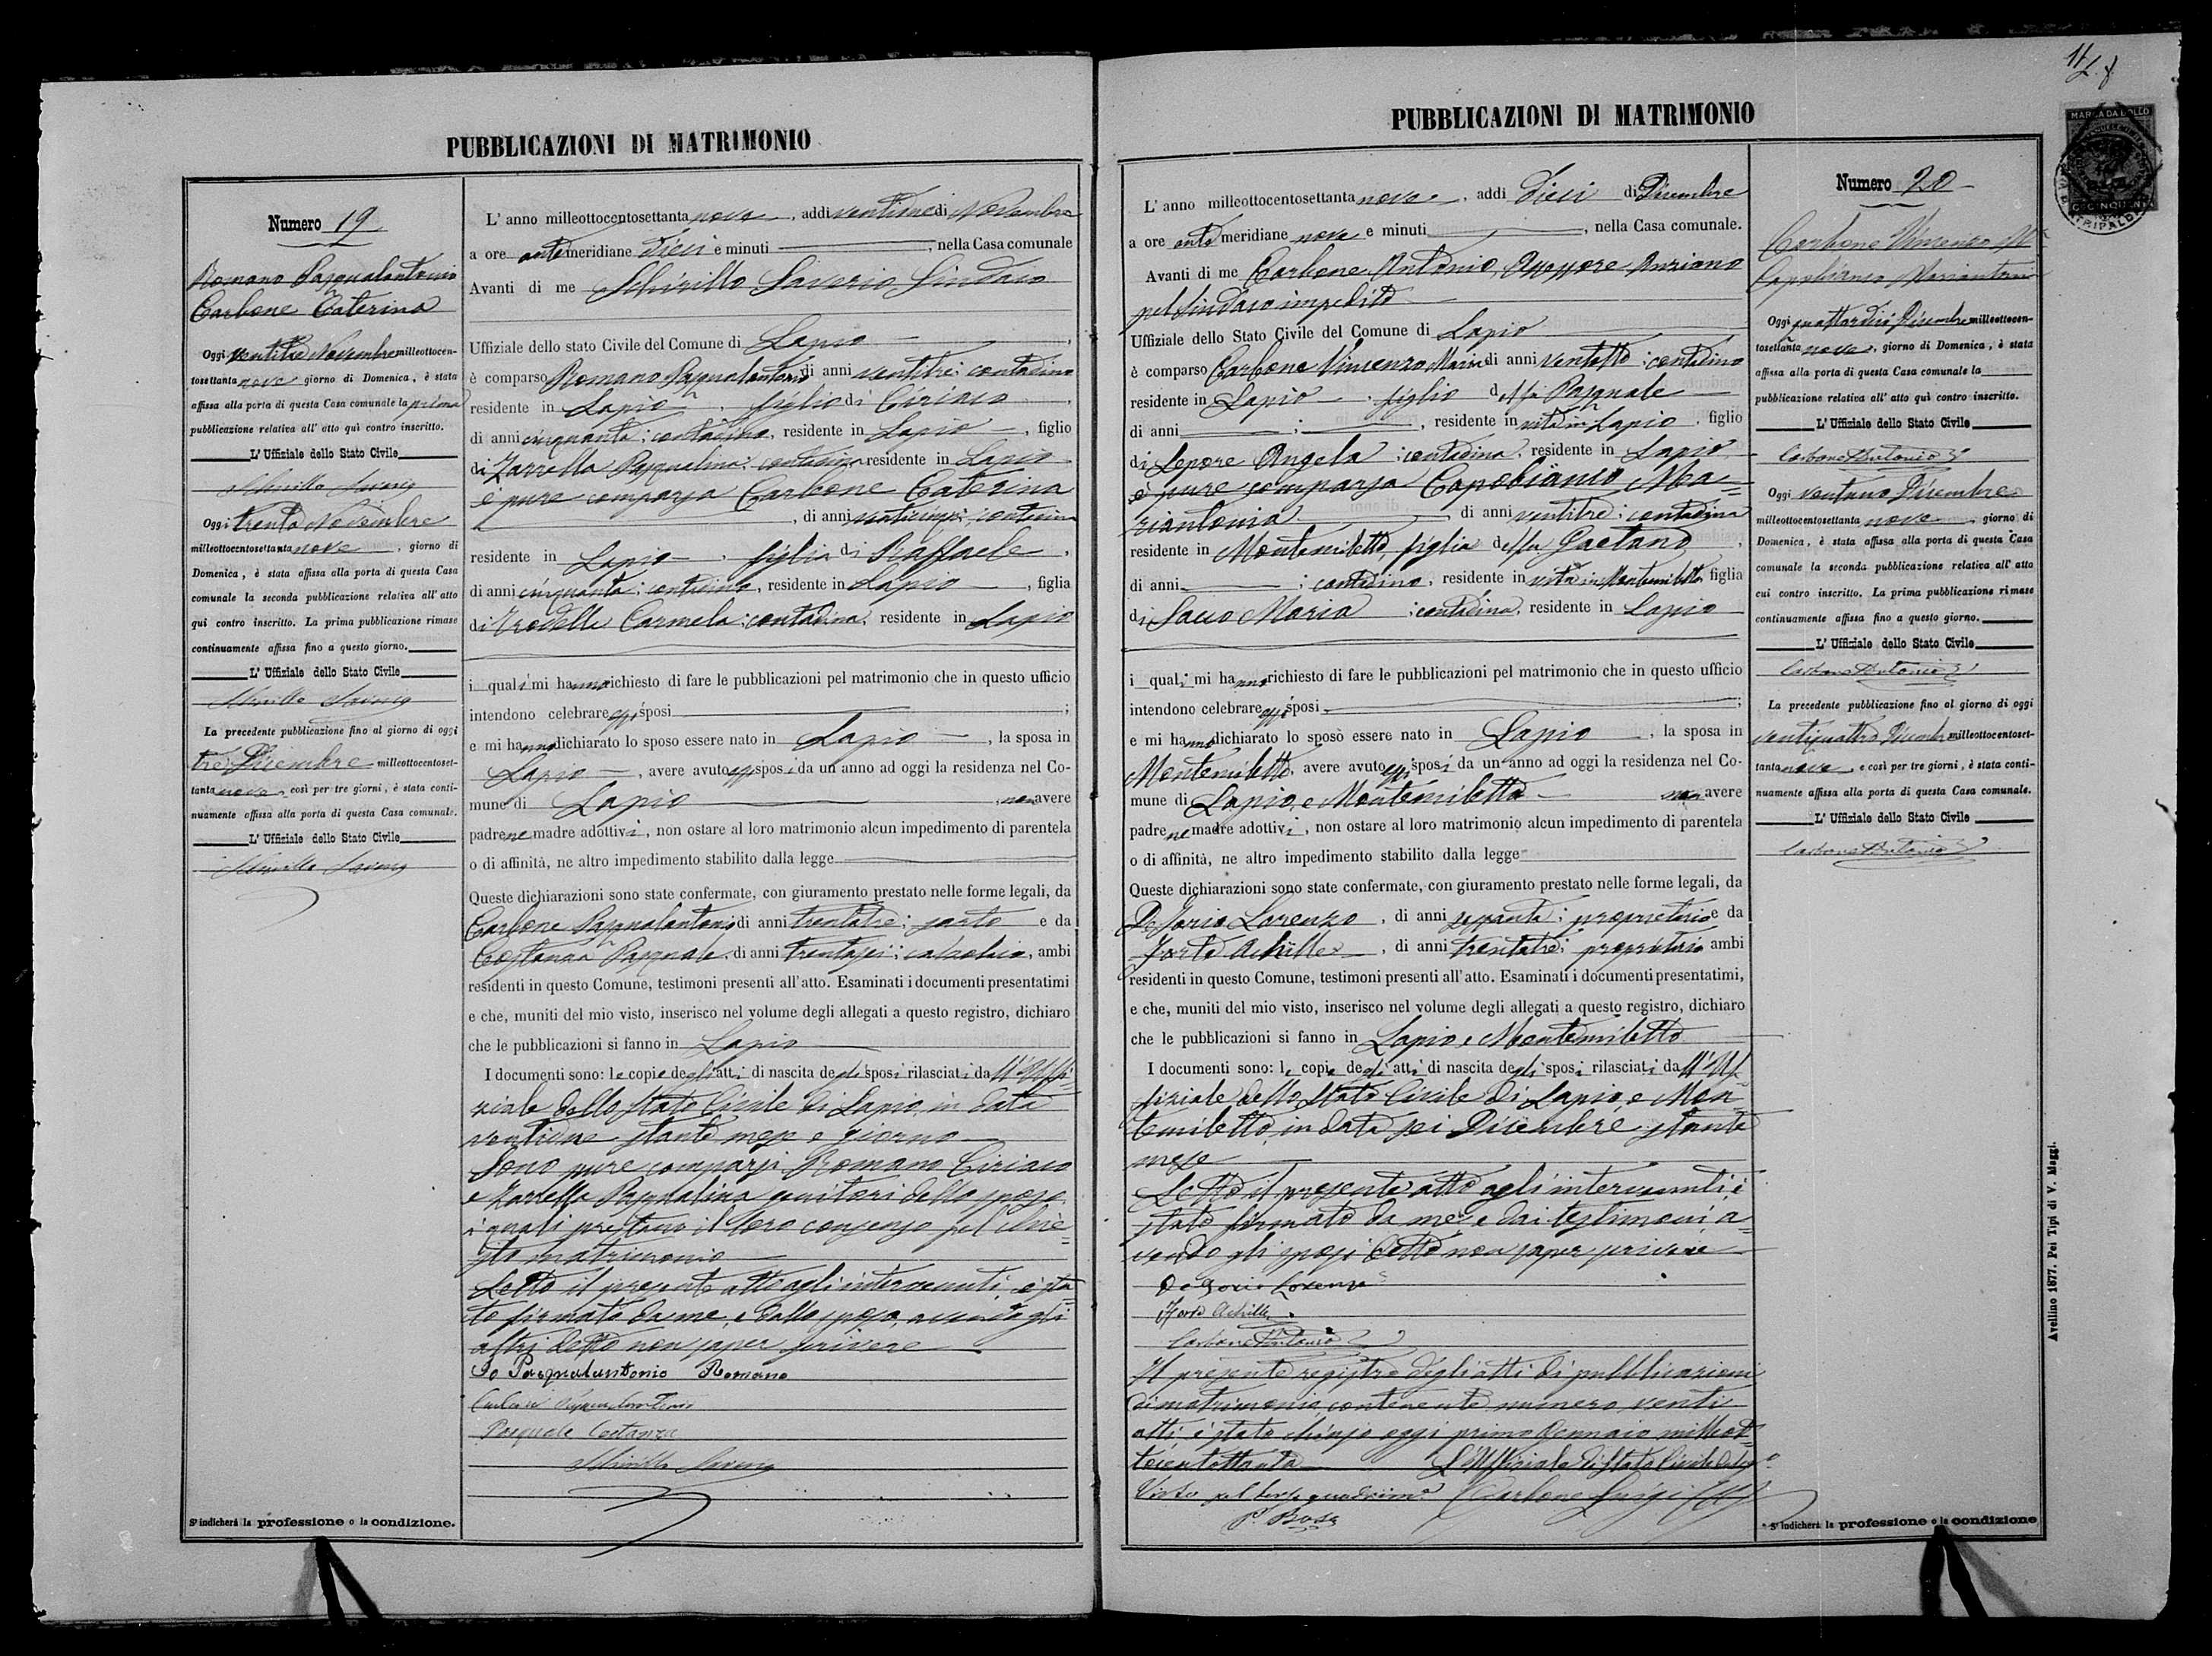 PUBBLICAZIONI DI MATRIMONIO
Numero 19
Romano Pasqualantonio
Carbone Caterina
Oggi ventitre Novembre milleottocen-
tosettanta nove giorno di Domenica, è stata
affissa alla porta di questa Casa comunale la prima
pubblicazione relativa all' atto quì contro inscritto.
L' Uffiziale dello Stato Civile
Schirillo Saverio
Oggi trenta Novembre
milleottocentosettanta nove, giorno di
Domenica, è stata affissa alla porta di questa Casa
comunale la seconda pubblicazione relativa all' atto
qui contro inscritto. La prima pubblicazione rimase
continuamente affissa fino a questo giorno.
L' Uffiziale dello Stato Civile
Schirillo Saverio
La precedente pubblicazione fino al giorno di oggi
tre Dicembre milleottocentoset-
tanta nove, così per tre giorni, è stata conti-
nuamente affissa alla porta di questa Casa comunale.
L' Uffiziale dello Stato Civile
Schirillo Saverio
S' indicherà la professione o la condizione.
L' anno milleottocentosettanta nove, addi ventidue di Novembre
a ore antimeridiane dieci e minuti , nella Casa comunale
Avanti di me Schirillo Saverio Sindaco
Uffiziale dello stato Civile del Comune di Lapio
è comparso Romano Pasqualantonio di anni ventitre; contadino
residente in Lapio, figlio di Ciriaco
di anni cinquanta; contadino, residente in Lapio, figlio
di Zarrella Pasqualina contadina residente in Lapio
è pure comparsa Carbone Caterina
, di anni venticinque contadina
residente in Lapio, figlia di Raffaele,
di anni cinquanta; contadino, residente in Lapio, figlia
di Carmela; contadina, residente in Lapio
i quali mi hanno richiesto di fare le pubblicazioni pel matrimonio che in questo ufficio
intendono celebrare essi sposi ;
e mi hanno dichiarato lo sposo essere nato in Lapio, la sposa in
Lapio, avere avuto essi sposi da un anno ad oggi la residenza nel Co-
mune di Lapio, non avere
padre ne madre adottivi, non ostare al loro matrimonio alcun impedimento di parentela
o di affinità, ne altro impedimento stabilito dalla legge
Queste dichiarazioni sono state confermate, con giuramento prestato nelle forme legali, da
Carbone Pasqualantonio di anni trentatre; sarto e da
Costanza Pasquale, di anni trentasei; calzolaio, ambi
residenti in questo Comune, testimoni presenti all' atto. Esaminati i documenti presentatimi
e che, muniti del mio visto, inserisco nel volume degli allegati a questo registro, dichiaro
che le pubblicazioni si fanno in Lapio
I documenti sono: le copie degli atti di nascita degli sposi rilasciati da ll'Uffi-
ziale dello Stato Civile di Lapio in data
ventidue stante mese e giorno
Sono pure comparsi Romano Ciriaco
e Zarrella Pasqualina genitori dello sposo
i quali prestano il loro consenso pel chie-
sto matrimonio
Letto il presente atto agli intervenuti, è sta-
to firmato da me, e dallo sposo avendo gli
altri detto non saper scrivere
Io Pasqualantonio Romano
Carbone Pasqualantonio
Pasquale Costanza
Schirillo Saverio
PUBBLICAZIONI DI MATRIMONIO
L' anno milleottocentosettanta nove, addi dieci di Dicembre
a ore antimeridiane nove e minuti , nella Casa comunale.
Avanti di me Carbone Antonio, Assessore Anziano
pel Sindaco impedito
Uffiziale dello Stato Civile del Comune di Lapio
è comparso Carbone Vincenzo Maria di anni ventotto; contadino
residente in Lapio, figlio del fu Pasquale
di anni ; , residente in vita in Lapio, figlio
di Lepore Angela; contadina, residente in Lapio
è pure comparsa Capobianco Ma-
riantonia di anni ventitre; contadina
residente in Montemiletto, figlia del fu Gaetano,
di anni ; contadino, residente in vita in Montemiletto, figlia
di Sacco Maria; contadina, residente in Lapio
i quali mi hanno richiesto di fare le pubblicazioni pel matrimonio che in questo ufficio
intendono celebrare essi sposi ;
e mi hanno dichiarato lo sposo essere nato in Lapio, la sposa in
Montemiletto, avere avuto essi sposi da un anno ad oggi la residenza nel Co-
mune di Lapio, e Montemiletto non avere
padre ne madre adottivi, non ostare al loro matrimonio alcun impedimento di parentela
o di affinità, ne altro impedimento stabilito dalla legge
Queste dichiarazioni sono state confermate, con giuramento prestato nelle forme legali, da
De Iorio Lorenzo, di anni sessanta; proprietario e da
Forte Achille, di anni trentatre; proprietario ambi
residenti in questo Comune, testimoni presenti all' atto. Esaminati i documenti presentatimi,
e che, muniti del mio visto, inserisco nel volume degli allegati a questo registro, dichiaro
che le pubblicazioni si fanno in Lapio, e Montemiletto
I documenti sono: le copie degli atti di nascita degli sposi rilasciati da ll'Uf-
fiziale dello Stato Civile di Lapio, e Mon-
temiletto, in data sei Dicembre stante
mese
Letto il presente atto agli intervenuti, è
stato firmato da me, e dai testimoni a-
vendo gli sposi detto non saper scrivere
De Iorio Lorenzo
Forte Achille
Carbone Antonio
Il presente registro degli atti di pubblicazioni
di matrimonio, contenente numero venti
atti è stato chiuso oggi primo Gennaio milleot-
tocentottanta L'Uffiziale di Stato Civile
Visto pel terzo quadrim.e Carbone Luigi
Numero 20
Carbone Vincenzo M.a
Capobianco Mariantonia
Oggi quattordici Dicembre milleottocen-
tosettanta nove, giorno di Domenica, è stata
affissa alla porta di questa Casa comunale la
pubblicazione relativa all' atto quì contro inscritto.
L' Uffiziale dello Stato Civile
Carbone Antonio
Oggi ventuno Dicembre
milleottocentosettanta nove giorno di
Domenica, è stata affissa alla porta di questa Casa
comunale la seconda pubblicazione relativa all' atto
cui contro inscritto. La prima pubblicazione rimase
continuamente affissa fino a questo giorno.
L' Uffiziale dello Stato Civile
Carbone Antonio
La precedente pubblicazione fino al giorno di oggi
ventiquattro Dicembre milleottocentoset-
tanta nove, e così per tre giorni, è stata conti-
nuamente affissa alla porta di questa Casa comunale.
L' Uffiziale dello Stato Civile
Carbone Antonio
S' indicherà la professione o la condizione
Avellino 1877. Pei Tipi di V. Maggi.
MARCA DA BOLLO